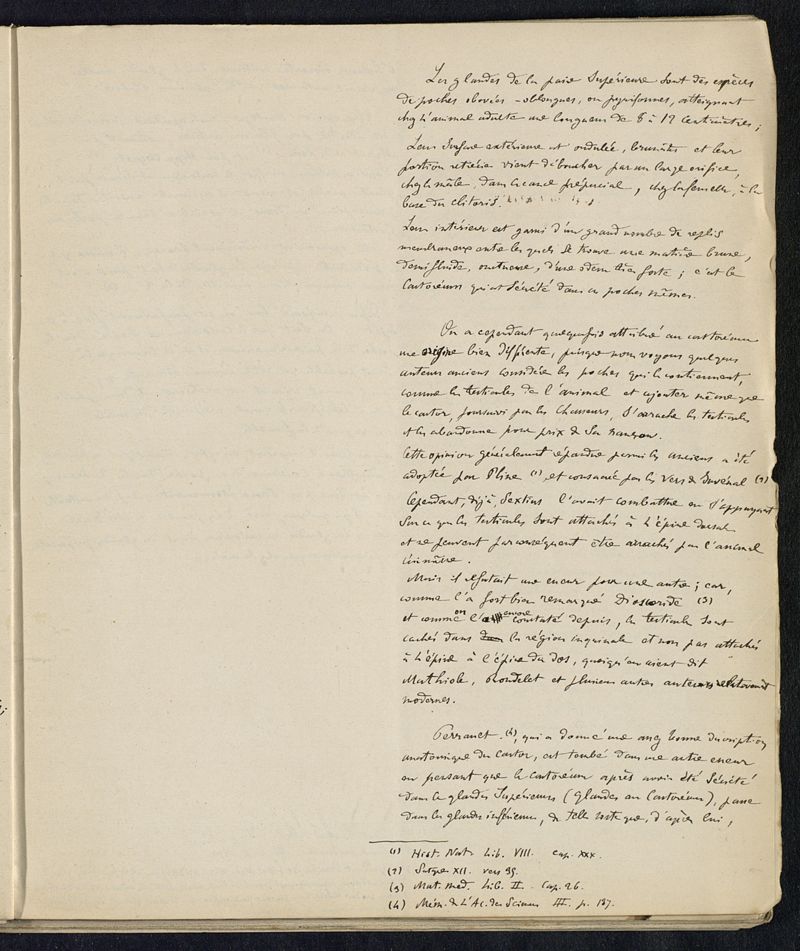 Les glandes de la paire supérieure sont des espèces
de poches obovées-oblongues, ou pyriformes, atteignant
chez l'animal adulte une longueur de 8 à 12 centimètres;
Leur surface extérieure est ondulée, brunâtre et leur
portion rétrécie vient déboucher par un large orifice,
chez le mâle, dans le canal préputial, chez la femelle, à la
base du clitoris.
Leur intérieur est garni d'un grand nombre de replis
membraneux entre lesquels se trouve une matière brune,
demi fluide, onctueuse, d'une odeur très forte; c'est le
Castoréum qui est sécrété dans ces poches mêmes.
On a cependant quelquefois attribué au castoréum
une origine bien différente, puisque nous voyons quelques
auteurs anciens considérer les poches qui le contiennent,
comme les testicules de l'animal et ajouter même que
le castor, poursuivi par les chasseurs, s'arrache les testicules
et les abandonne pour prix de sa rançon.
Cette opinion généralement répandue parmi les anciens a été
adoptée par Pline (1), et consacrée par les vers de Juvénal (2)
Cependant, déjà, Sextius l'avait combattue en s'appuyant
sur ce que les testicules sont attachés à l'épine dorsale
et ne peuvent par conséquent être arrachés par l'animal
lui même.
Mais il réfutait une erreur pour une autre; car,
comme l'a fort bien remarqué Dioscoride (3)
et comme on l'a encore constaté depuis, les testicules sont
cachés dans la région inguinale et non pas attachés
à l'épine à l'épine du dos, quoiqu'en aient dit
Mathiole, Rondelet et plusieurs autres auteurs relativement
modernes.
Perrault (4), qui a donné une assez bonne description
anatomique du castor, est tombé dans une autre erreur
en pensant que le castoréum après avoir été sécrété
dans les glandes supérieures (Glandes au Castoréum), passe
dans les glandes inférieures, de telle sorte que, d'après lui,
(1) Hist. Nat. Lib. VIII. Cap. XXX.
(2) Satyre XII. vers 35.
(3) Mat. méd. Lib. II. Cap. 26.
(4) Mém. de l'Ac. des Sciences III. p. 137.